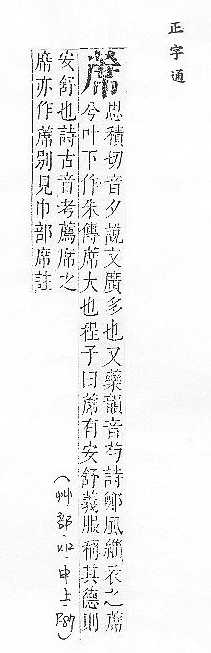 正字通
蓆
思積切音夕說文廣多也又藥韻音勺詩鄭風緇衣之蓆
兮叶下作朱傳蓆大也程子曰蓆有安舒義服稱其德則
安舒也詩古音考薦席之
席亦作蓆別見巾部席註
(艸部.x12.中上.P87)